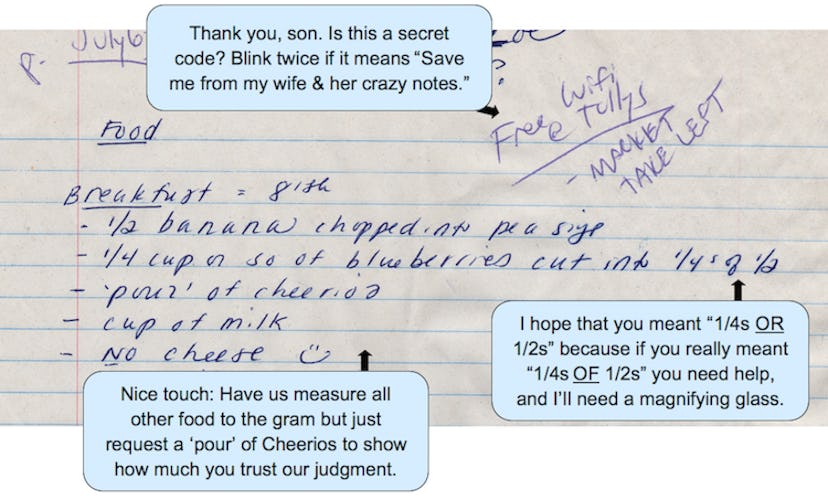 Thank you, son. Is this a secret
code? Blink twice if it means “Save
me from my wife & her crazy notes.”
July 6
?
Free Wifi
@ Tullys
- MARKET
TAKE LEFT
Food
Breakfast = 8ish
- 1/2 banana chopped into pea size
- 1/4 cup or so of blueberries cut into 1/4s of 1/2
- 'pour' of cheerios
- cup of milk
- NO cheese ☺
I hope that you meant “1/4s OR
1/2s” because if you really meant
“1/4s OF 1/2s” you need help,
and I’ll need a magnifying glass.
Nice touch: Have us measure all
other food to the gram but just
request a ‘pour’ of Cheerios to show
how much you trust our judgment.